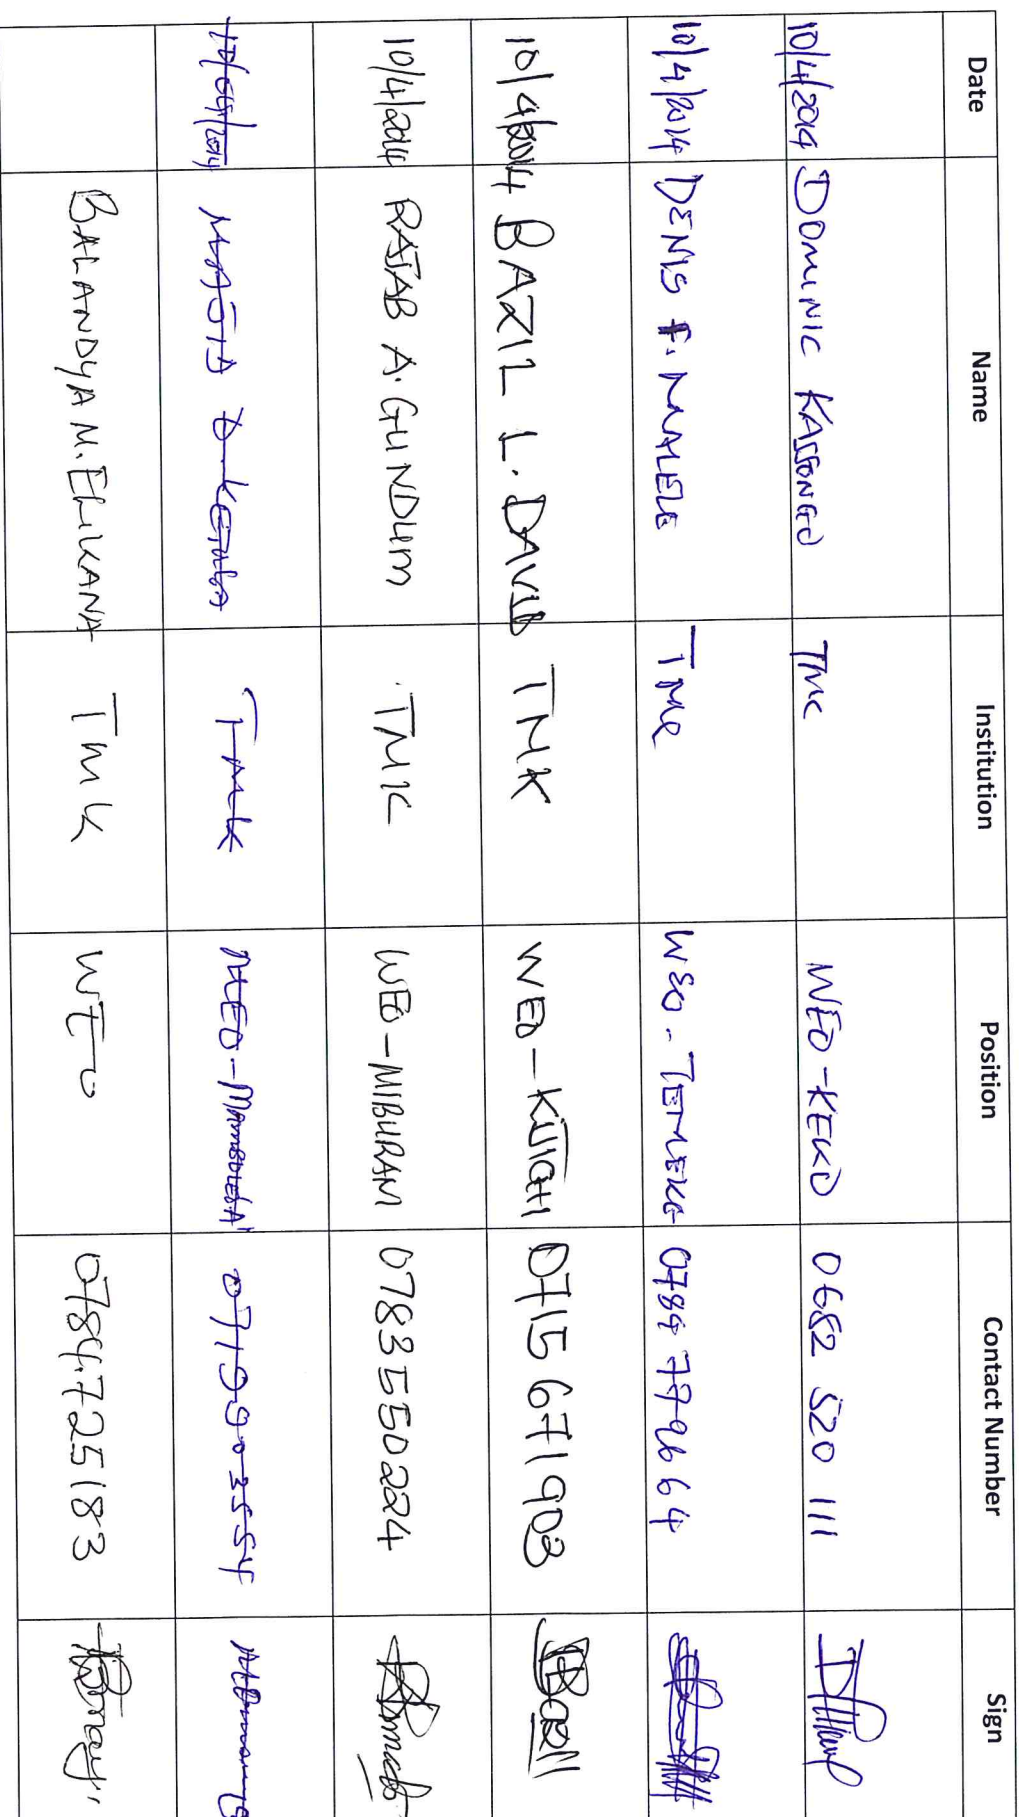 Date Name Institution Position Contact Number Sign
10/4/2014 DOMINIC KASSONGO TMC WEO-KEKO 0682 520 111
10/4/2014 DENIS F. TMC WEO-TEMEKE
10/4/2014 BAZIL L. DAVID TMK WEO-KIJICHI 0715 671903
10/4/2014 RAJAB A. GUNDUM TMK WEO-MIBURANI 0783550224
10/04/2014 TMK 0719903554
BALANDYA M. ELIKANA TMK WEO 0784725183